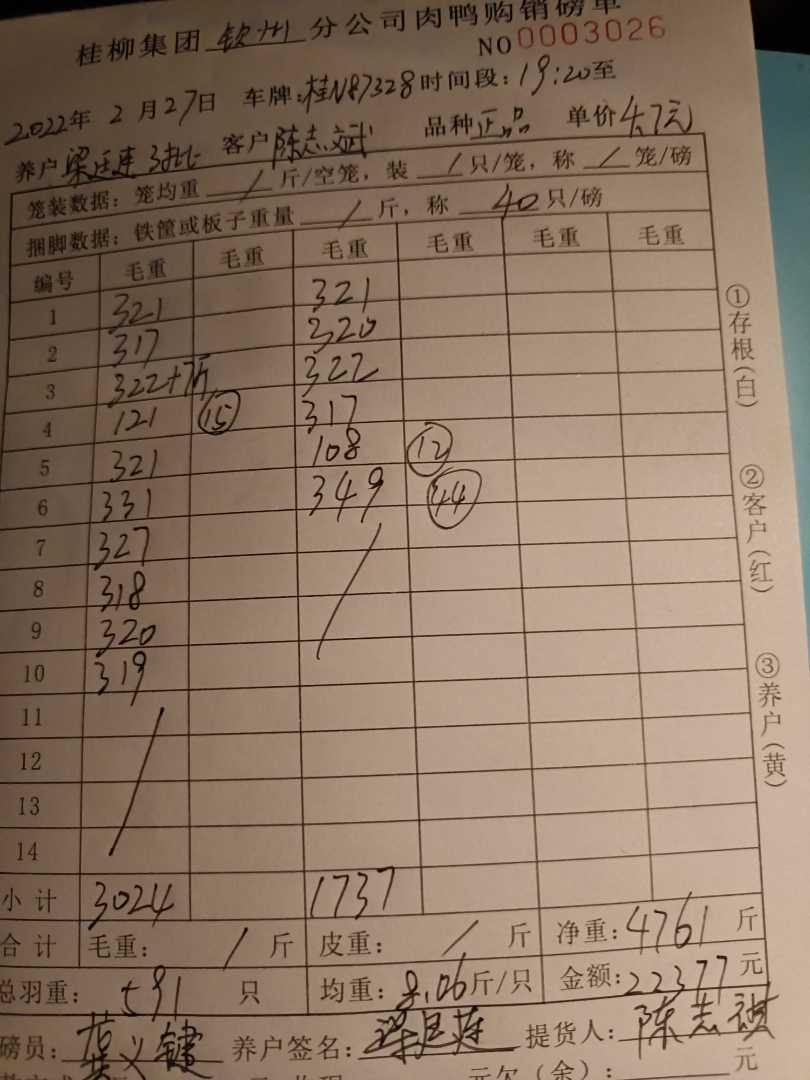 桂柳集团 钦州 分公司肉鸭购销磅单
NO 0003026
2022年 2 月 27日 车牌:桂N87328 时间段:19:20至
养户 梁廷连 3批 客户 陈志斌 品种 正品 单价 4.7元
笼装数据:笼均重 / 斤/空笼,装 / 只/笼,称 / 笼/磅
捆脚数据:铁筐或板子重量 / 斤,称 40 只/磅
编号 毛重 毛重 毛重 毛重 毛重 毛重
1 321 321
2 317 320
3 322+7斤 322
4 121 ⑮ 317
5 321 108 ⑫
6 331 349 ㊹
7 327 /
8 318
9 320
10 319
11 /
12
13
14
小计 3024 1737
合计 毛重: / 斤 皮重: / 斤 净重:4761 斤
总羽重: 591 只 均重:8.06斤/只 金额:22377元
磅员: 养户签名: 提货人:陈志
元欠(余): 元
①存根(白)
②客户(红)
③养户(黄)